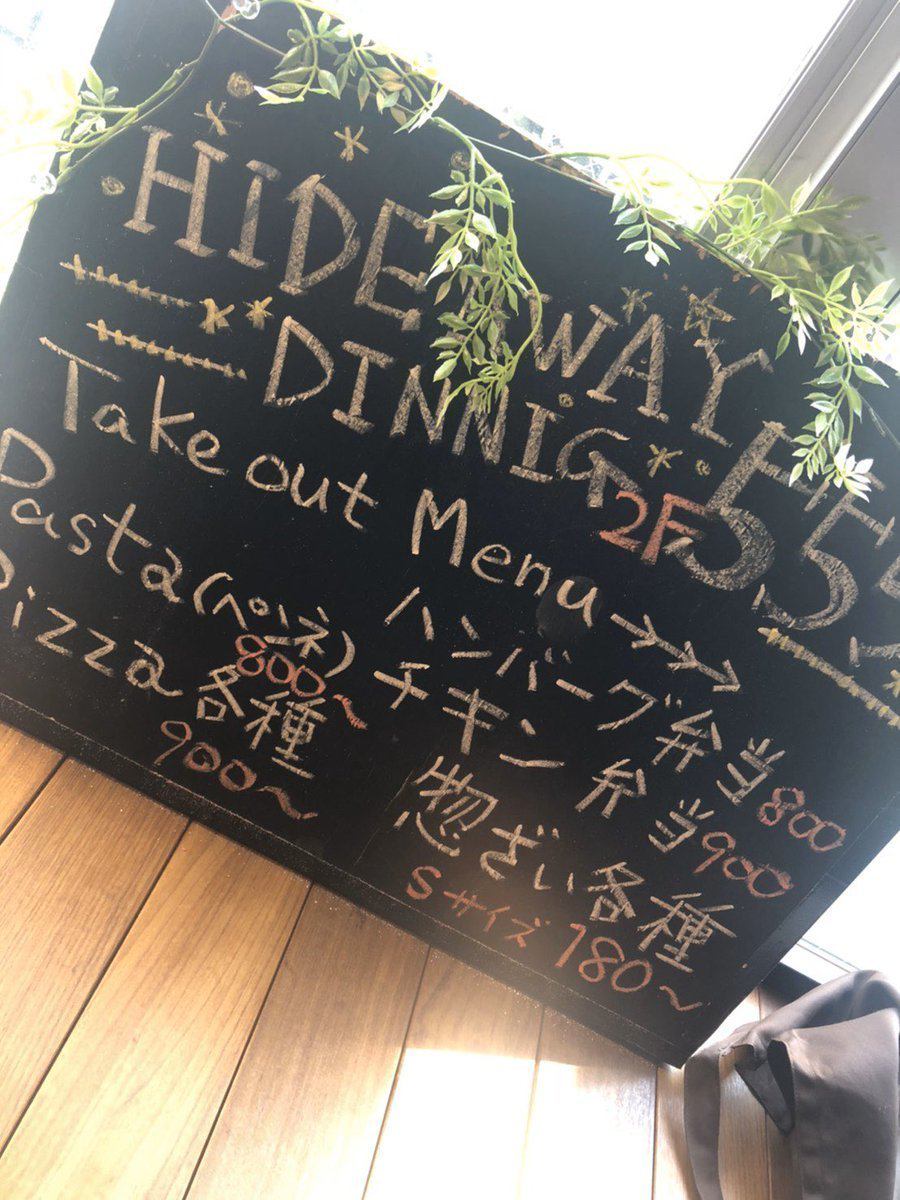 HiDE AWAY 55
DINNIG 2F
Take out Menu
Pasta(ペンネ)
800〜
Pizza各種
900〜
ハンバーグ弁当800
チキン弁当900
惣ざい各種
Sサイズ180〜